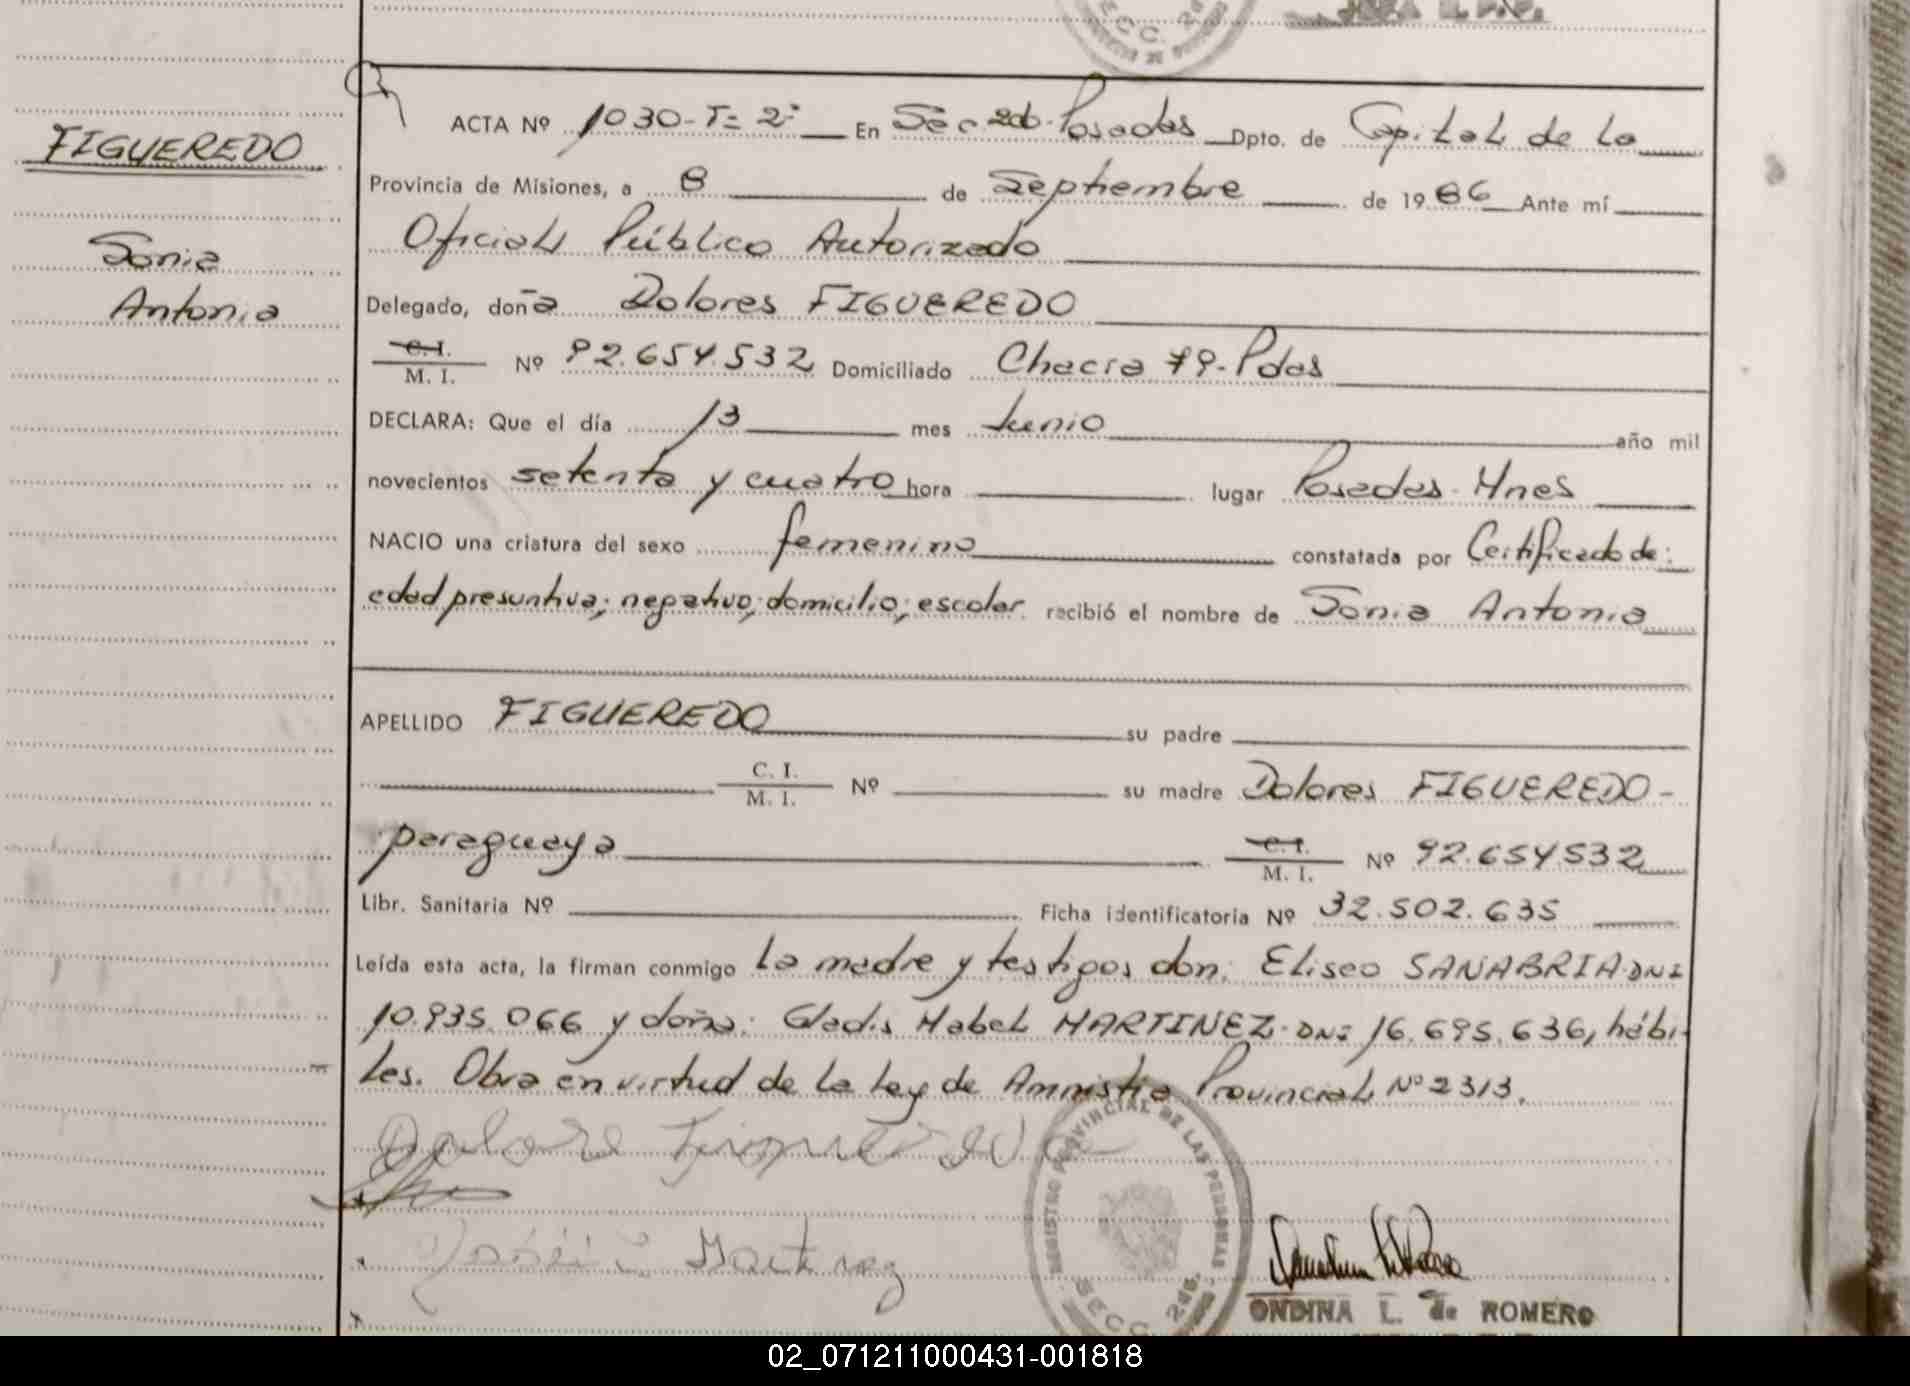 SECC. 2da.
FIGUEREDO
Sonia
Antonia
ACTA Nº 1030-T= 2º En Sec. 2da. Posadas Dpto. de Capital de la
Provincia de Misiones, a 8 de Septiembre de 1986 Ante mí
Oficial Público Autorizado
Delegado, doña Dolores FIGUEREDO
C. I.
M. I. Nº 92.654.532 Domiciliado Chacra 79-Pdas
DECLARA: Que el día 13 mes Junio año mil
novecientos setenta y cuatro hora lugar Posadas-Mnes
NACIO una criatura del sexo femenino constatada por Certificado de:
edad presuntiva; negativo; domicilio; escolar. recibió el nombre de Sonia Antonia
APELLIDO FIGUEREDO su padre
C. I.
M. I. Nº su madre Dolores FIGUEREDO-
paraguaya C. I.
M. I. Nº 92.654.532
Libr. Sanitaria Nº Ficha identificatoria Nº 32.502.635
Leída esta acta, la firman conmigo la madre y testigos don: Eliseo SANABRIA-DNI
10.935.066 y doña: Gladis Mabel MARTINEZ-DNI 16.695.636, hábi-
les. Obra en virtud de la ley de Amnistia Provincial Nº 2313.
REGISTRO PROVINCIAL DE LAS PERSONAS
SECC. 2da.
Martinez
ONDINA L. de ROMERO
02_071211000431-001818